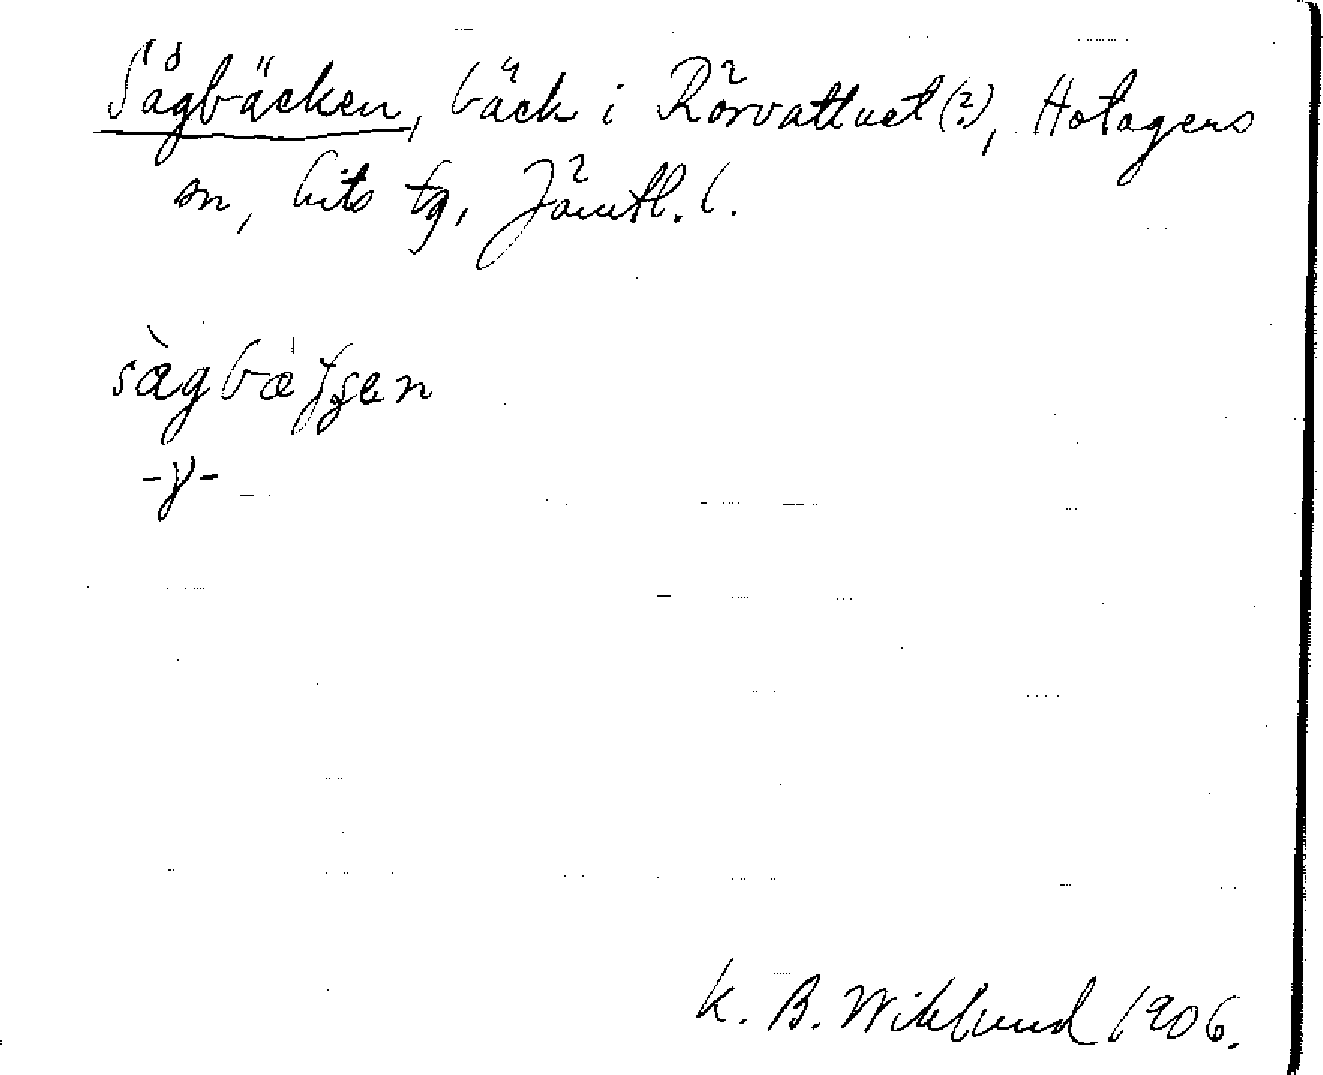 Sågbäcken, bäck i Rörvattnet(?), Hotagens
sn, Lits tg, Jämtl. l.
-γ-
K. B. Wiklund 1906.